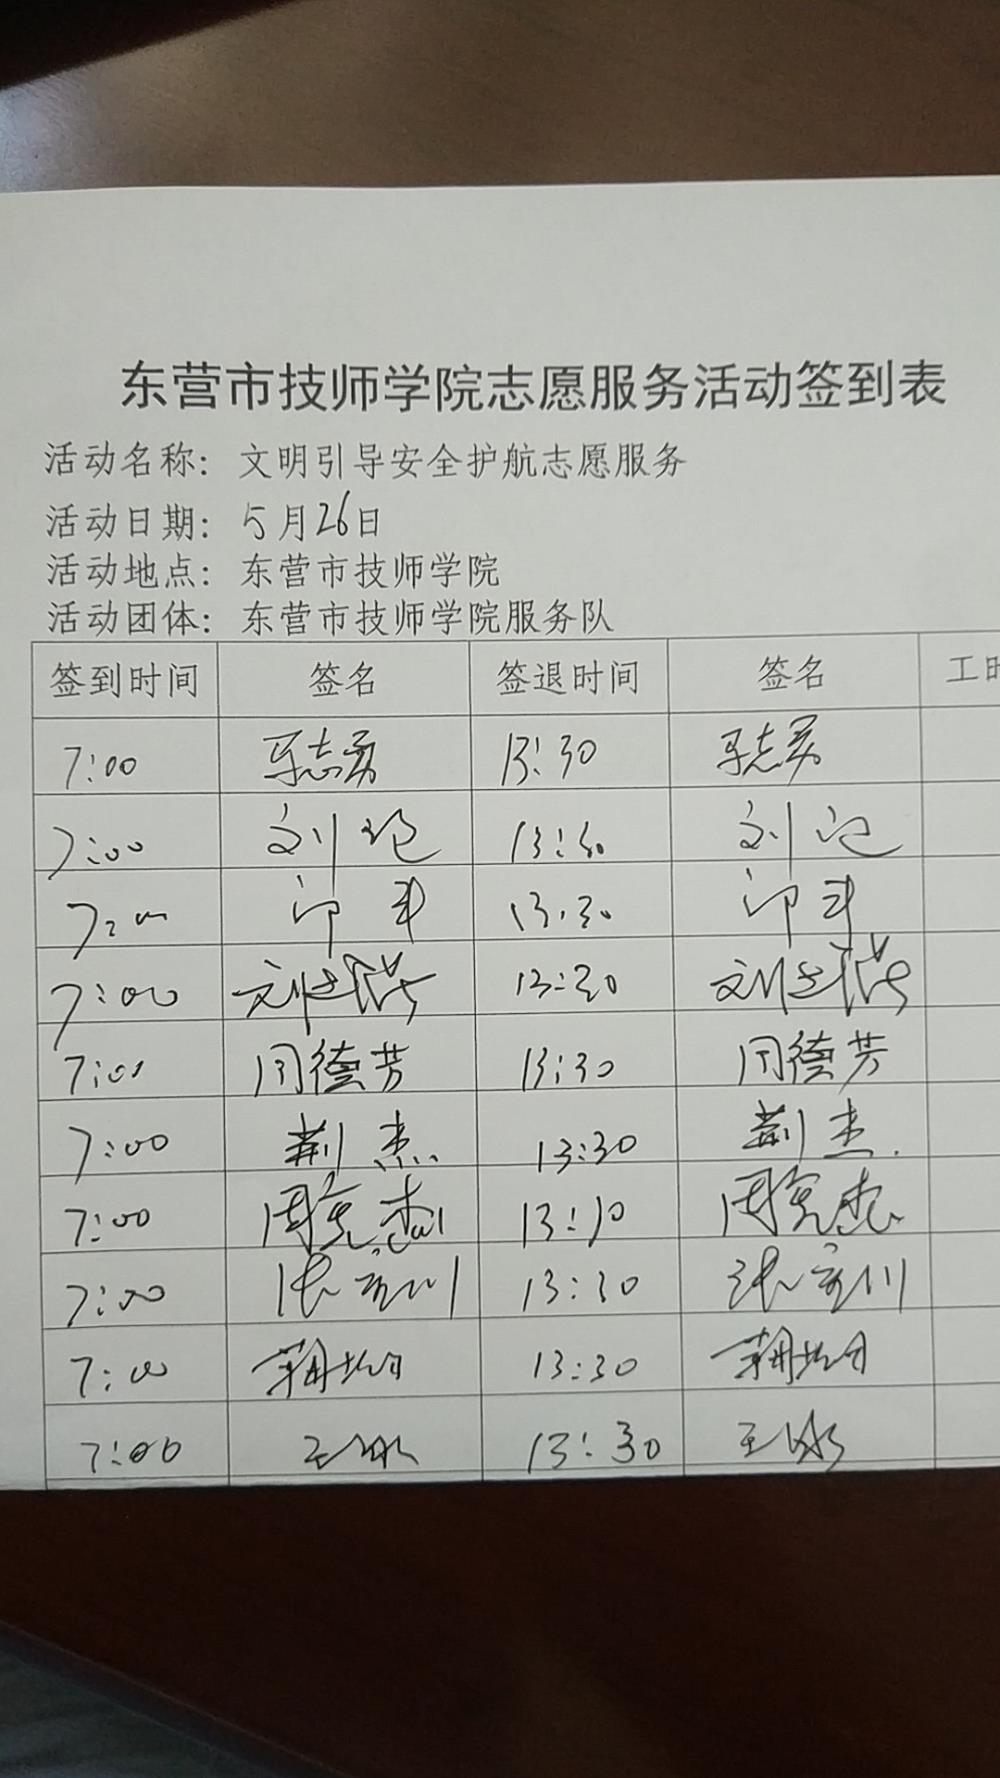 东营市技师学院志愿服务活动签到表
活动名称：文明引导安全护航志愿服务
活动日期：5月26日
活动地点：东营市技师学院
活动团体：东营市技师学院服务队
签到时间 签名 签退时间 签名 工时
7:00 13:30
7:00 刘 13:30 刘
7:00 13:30
7:00 刘 13:30 刘
7:00 闫德芳 13:30 闫德芳
7:00 荆杰 13:30 荆杰
7:00 周克杰 13:30 周克杰
7:00 张 川 13:30 张 川
7:00 13:30
7:00 王冰 13:30 王冰